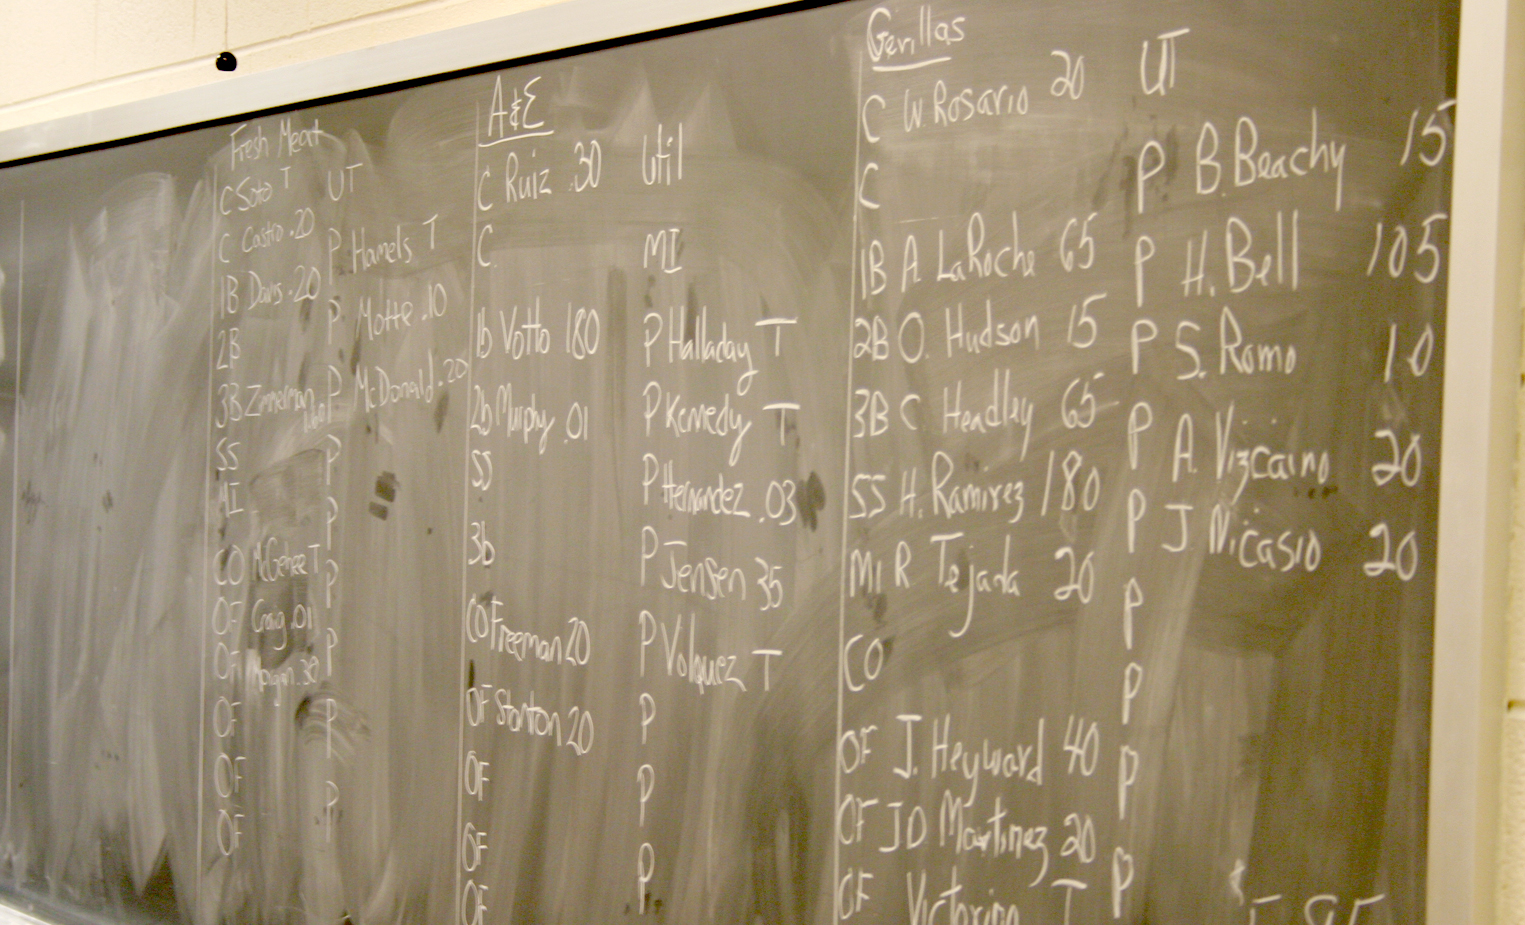 Fresh Meat
C Soto T
C Castro .20
1B Davis .20
2B
3B Zimmerman
SS
MI
CO McGehee T
OF Craig .01
OF Morgan .30
OF
OF
OF
UT
P Hamels T
P Motte .10
P McDonald .20
P
P
P
P
P
P
A&E
C Ruiz .30
C
1b Votto 180
2b Murphy .01
SS
3b
CO Freeman 20
OF Stanton 20
OF
OF
OF
Util
MI
P Halladay T
P Kennedy T
P Hernandez .03
P Jensen 35
P Volquez T
P
P
P
Gerillas
C W. Rosario 20
C
1B A. LaRoche 65
2B O. Hudson 15
3B C. Headley 65
SS H. Ramirez 180
MI R Tejada 20
CO
OF J. Heyward 40
OF JD Martinez 20
OF Victorino T
UT
P B. Beachy 15
P H. Bell 105
P S. Romo 10
P A. Vizcaino 20
P J. Nicasio 20
P
P
P
P